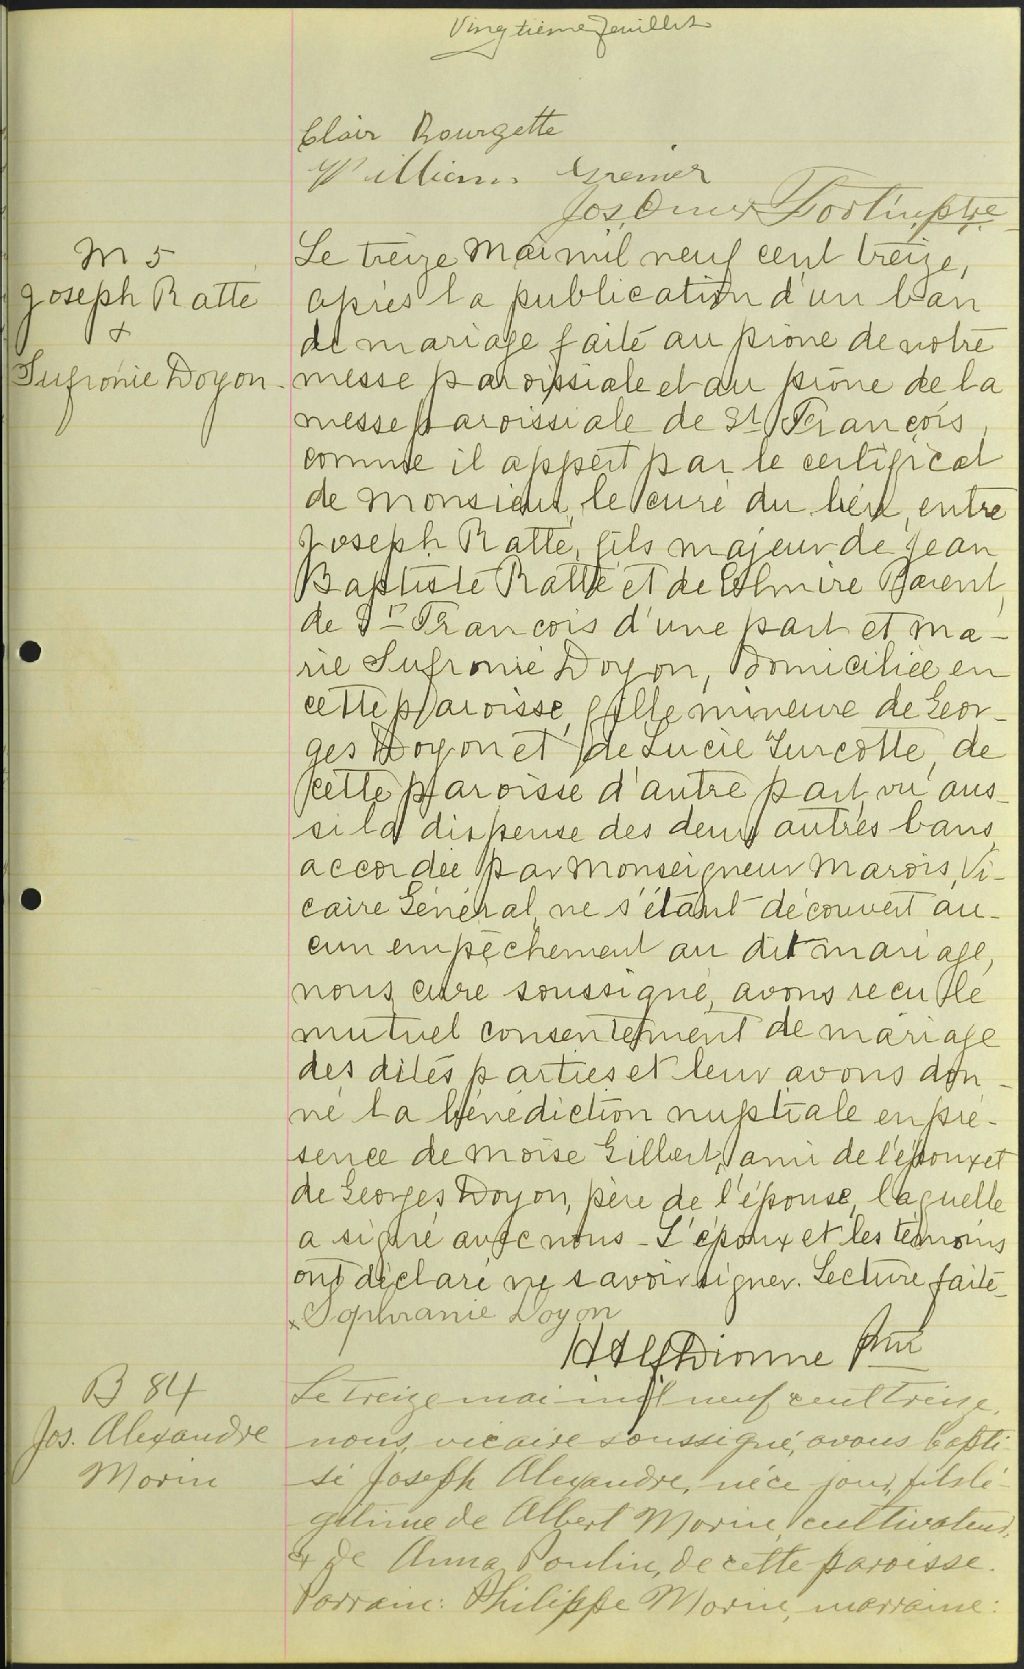 Vingtième feuillet
Clair Bourgette
William Grenier
Jos. Omer Fortin, ptre
M 5
Joseph Ratté
&
Sufronie Doyon
Le treize Mai mil neuf cent treize,
après la publication d'un ban
de mariage faite au prône de notre
messe paroissiale et au prône de la
messe paroissiale de St François,
comme il appert par le certificat
de Monsieur le curé du lieu, entre
Joseph Ratté, fils majeur de Jean
Baptiste Ratté et de Elmire Parent,
de St François d'une part et Ma-
rie Sufronie Doyon, domiciliée en
cette paroisse, fille mineure de Geor-
ges Doyon et de Lucie Turcotte, de
cette paroisse d'autre part, vu aus-
si la dispense des deux autres bans
accordée par Monseigneur Marois, Vi-
caire Général, ne s'étant découvert au-
cun empêchement au dit mariage,
nous, curé soussigné, avons recu le
mutuel consentement de mariage
des dites parties et leur avons don-
né la bénédiction nuptiale en pré-
sence de Moïse Gilbert, ami de l'époux et
de Georges Doyon, père de l'épouse, laquelle
a signé avec nous - L'époux et les témoins
ont déclaré ne savoir signer. Lecture faite_
x Sophranie Doyon
H Alf Dionne Ptre
B 84
Jos. Alexandre
Morin
Le treize mai mil neuf cent treize,
nous, vicaire soussigné, avons bapti-
sé Joseph Alexandre, né ce jour, fils lé-
gitime de Albert Morin, cultivateur,
& de Anna Poulin, de cette paroisse.
Parrain: Philippe Morin, marraine: